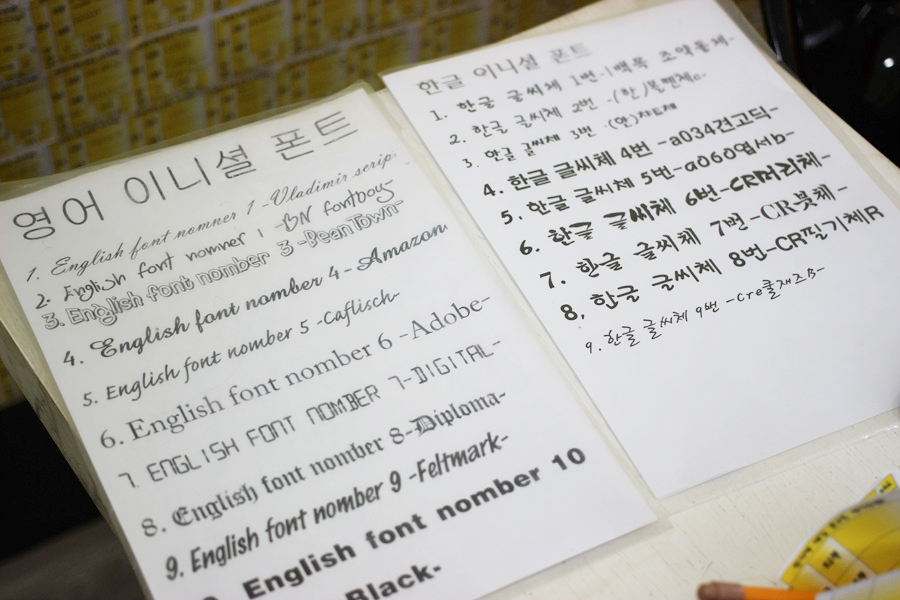 영어 이니셜 폰트
1. English font nomner 1 -Vladimir scrip
2. English font nomner 1 -BN fontboy
3. English font nomber 3 -Bean Town-
4. English font nomber 4 - Amazon
5. English font nomber 5 -Caflisch-
6. English font nomber 6 -Adobe-
7 ENGLISH FONT NOMBER 7-DIGITAL-
8. English font nomber 8-Diploma-
9. English font nomber 9 -Feltmark-
English font nomber 10
Black-
한글 이니셜 폰트
1. 한글 글씨체 1번-1백묵 조약돌체-
2. 한글 글씨체 2번 -(한)볼펜체c-
3. 한글 글씨체 3번 -(안)차트체
4. 한글 글씨체 4번 -a034견고딕-
5. 한글 글씨체 5번-a060엽서b-
6. 한글 글씨체 6번-CR머리체-
7. 한글 글씨체 7번-CR붓체-
8, 한글 글씨체 8번-CR필기체R
9. 한글 글씨체 9번 -Cre쿨재즈B-